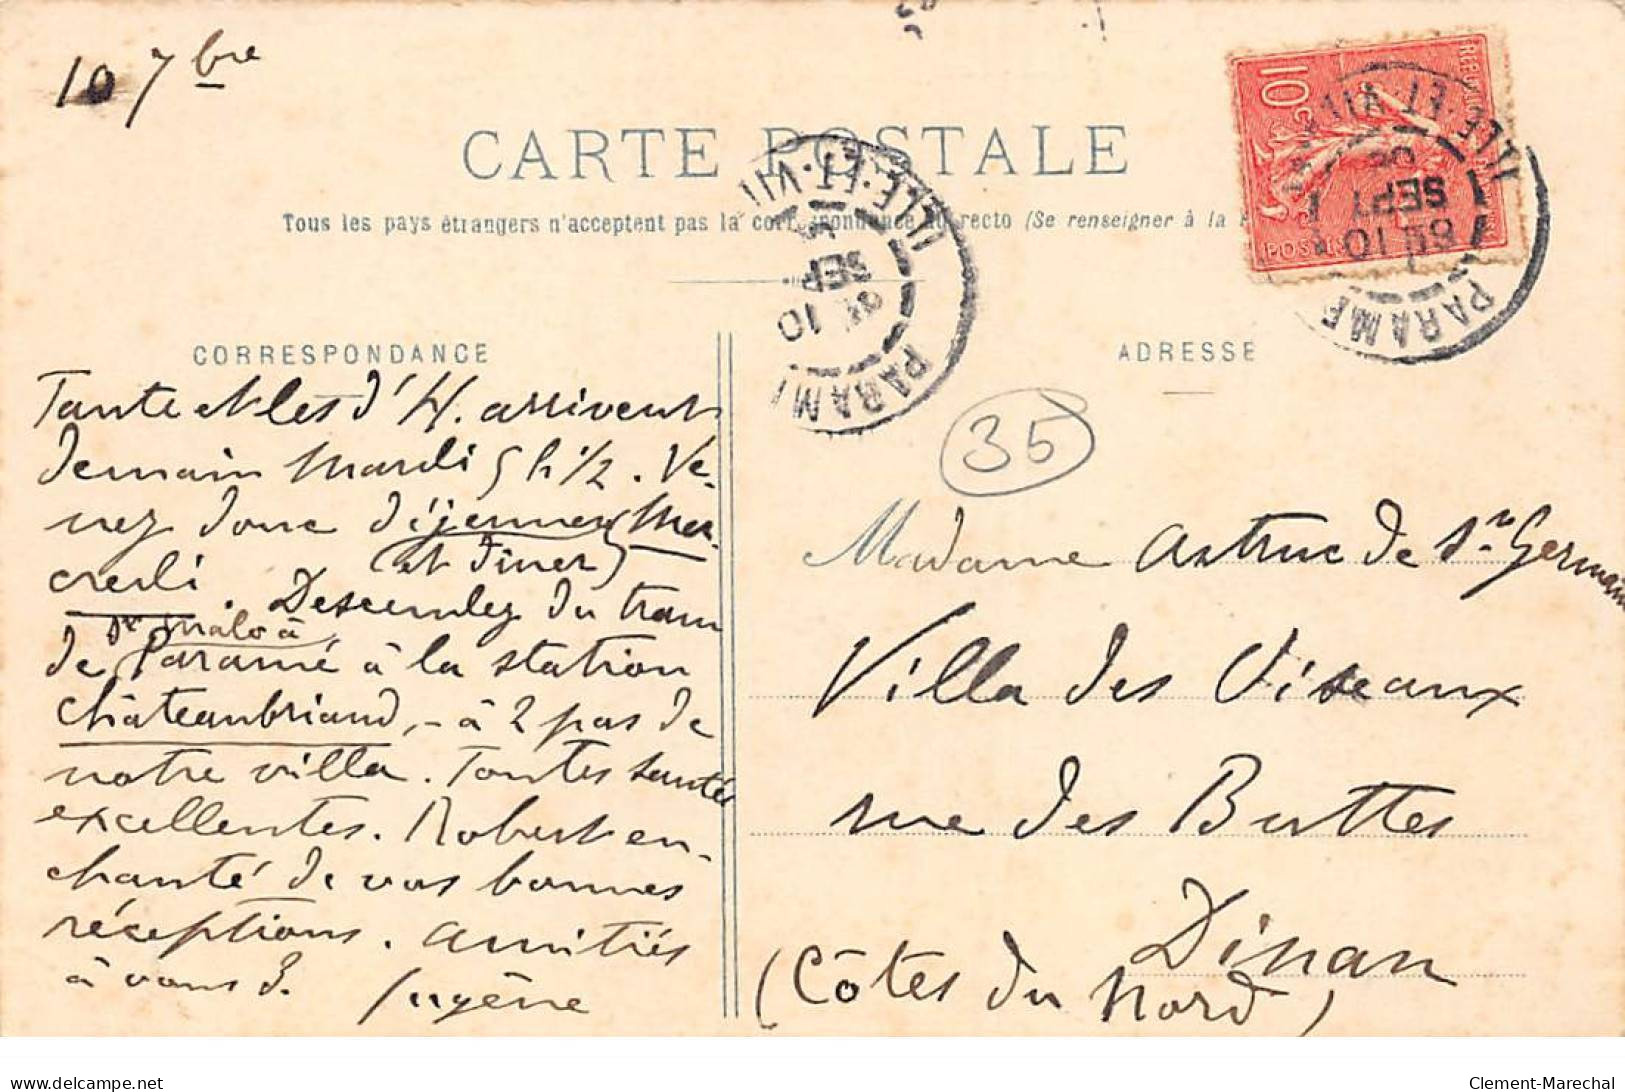 10 7bre
CARTE POSTALE
Tous les pays étrangers n'acceptent pas la correspondance au recto (Se renseigner à la
10c
POSTES
ILLE-ET-VIL
SEPT
10
PARAME
ILLE-ET-VIL
SEP
10
PARAM
CORRESPONDANCE
ADRESSE
35
Tante et les d'H. arrivent
demain Mardi 5 h 1/2. Ve-
nez donc déjeuner Mer-
(et dîner)
credi. Descendez du tram
St Malo à
de Paramé à la station
Châteaubriand, - à 2 pas de
notre villa. Toutes santés
excellentes. Robert en-
chanté de vos bonnes
réceptions. Amitiés
à vous 3. Eugène
Madame Astruc de St Germain
Villa des Oiseaux
rue des Buttes
Dinan
(Côtes du Nord)
delcampe.net
Clement-Marechal